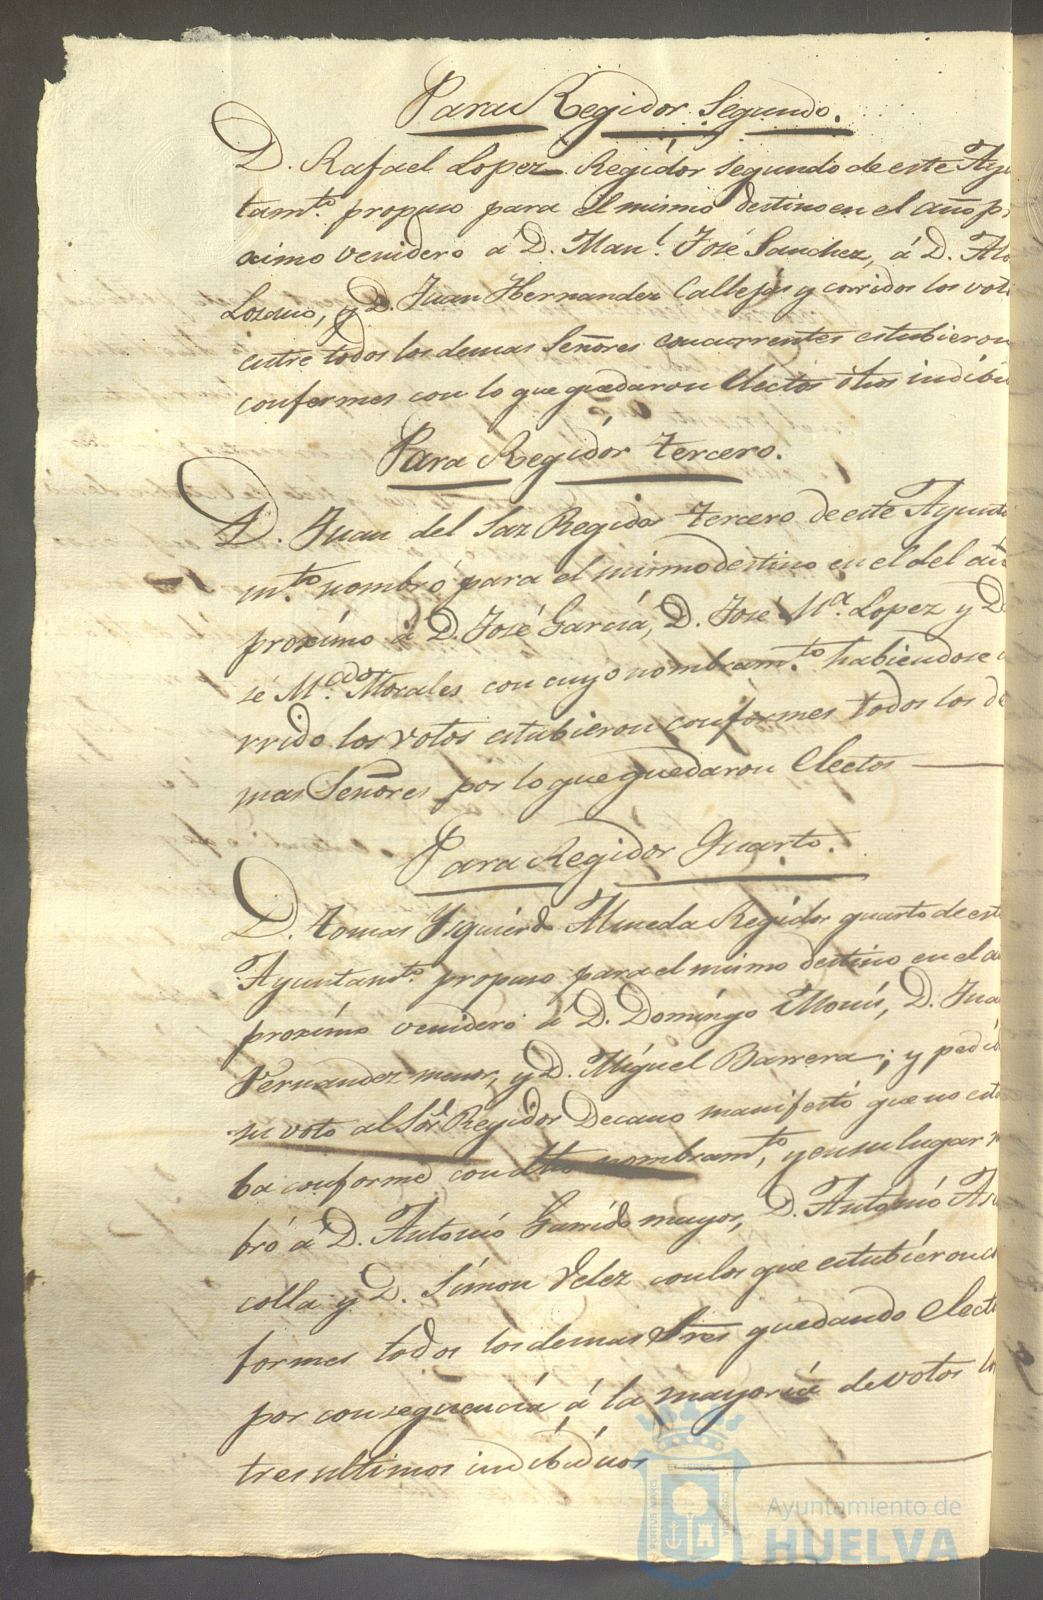 Para Regidor Segundo.
D. Rafael Lopez Regidor segundo de este Ayu
tamto. propuso para el mismo destino en el año pr
oximo venidero á D. Manl. José Sanchez, á D. Alo
Losano, y D. Juan Hernandez Callejas y corridos los vot
entre todos los demas Señores concurrentes estubieron
conformes con lo que quedaron Electos dhos indibi
Para Regidor tercero.
D. Juan del Saz Regidor tercero de este Ayunta
mto. nombró para el mismo destino en el del añ
proximo á D. José Garcia, D. José Ma. Lopez y D.
sé Mcdo. Morales con cuyo nombramto. habiendose
rrido los votos estubieron conformes todos los de
mas Señores por lo que quedaron Electos
Para Regidor Quarto.
D. tomas Ysquierdo Almeda Regidor quarto de est
Ayuntamto. propuso para el mismo destino en el a
proximo venidero á D. Domingo Monis, D. Jua
Fernandez menor, y D. Miguel Barrera; y pedid
su voto al Sor. Regidor Decano manifestó que no esta
ba conforme con dho nombramto, y en su lugar n
bró á D. Antonio Garrido mayor, D. Antonio As
colla y D. Simon Velez con los que estubieron c
formes todos los demas Sres quedando Elect
por consequencia á la mayoria de votos l
tres ultimos indibiduos
Ayuntamiento de
HUELVA